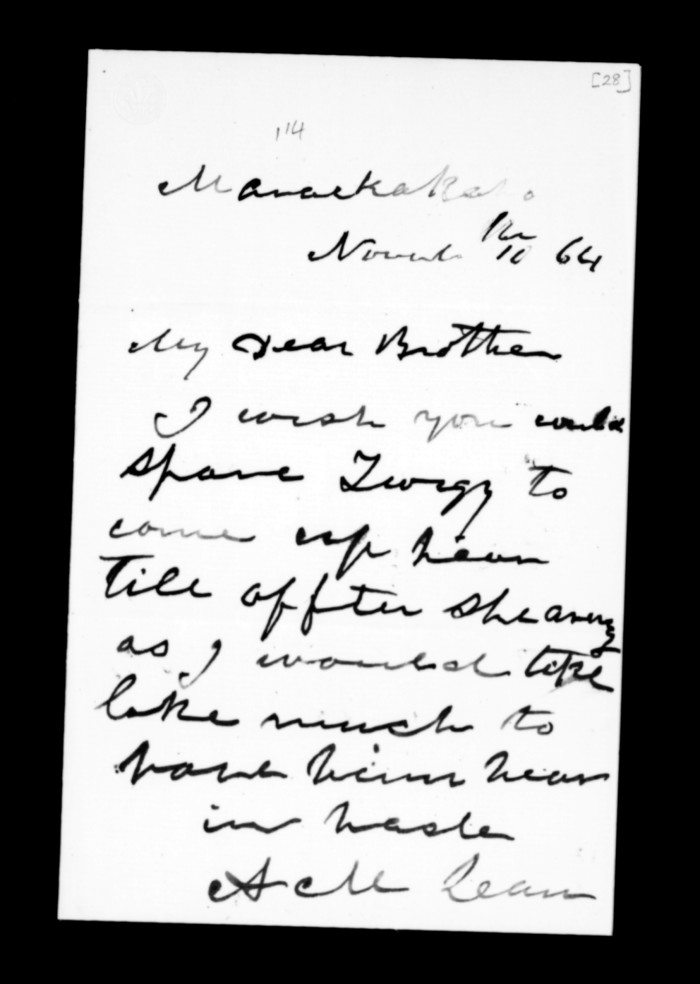 [28]
114
Maraekakaho
Novemb 10 64
My Dear Brother
I wish you would
spare Georgy to
come up hear
till affter shearing
as I would
like much to
have him hear
in haste
A McLean